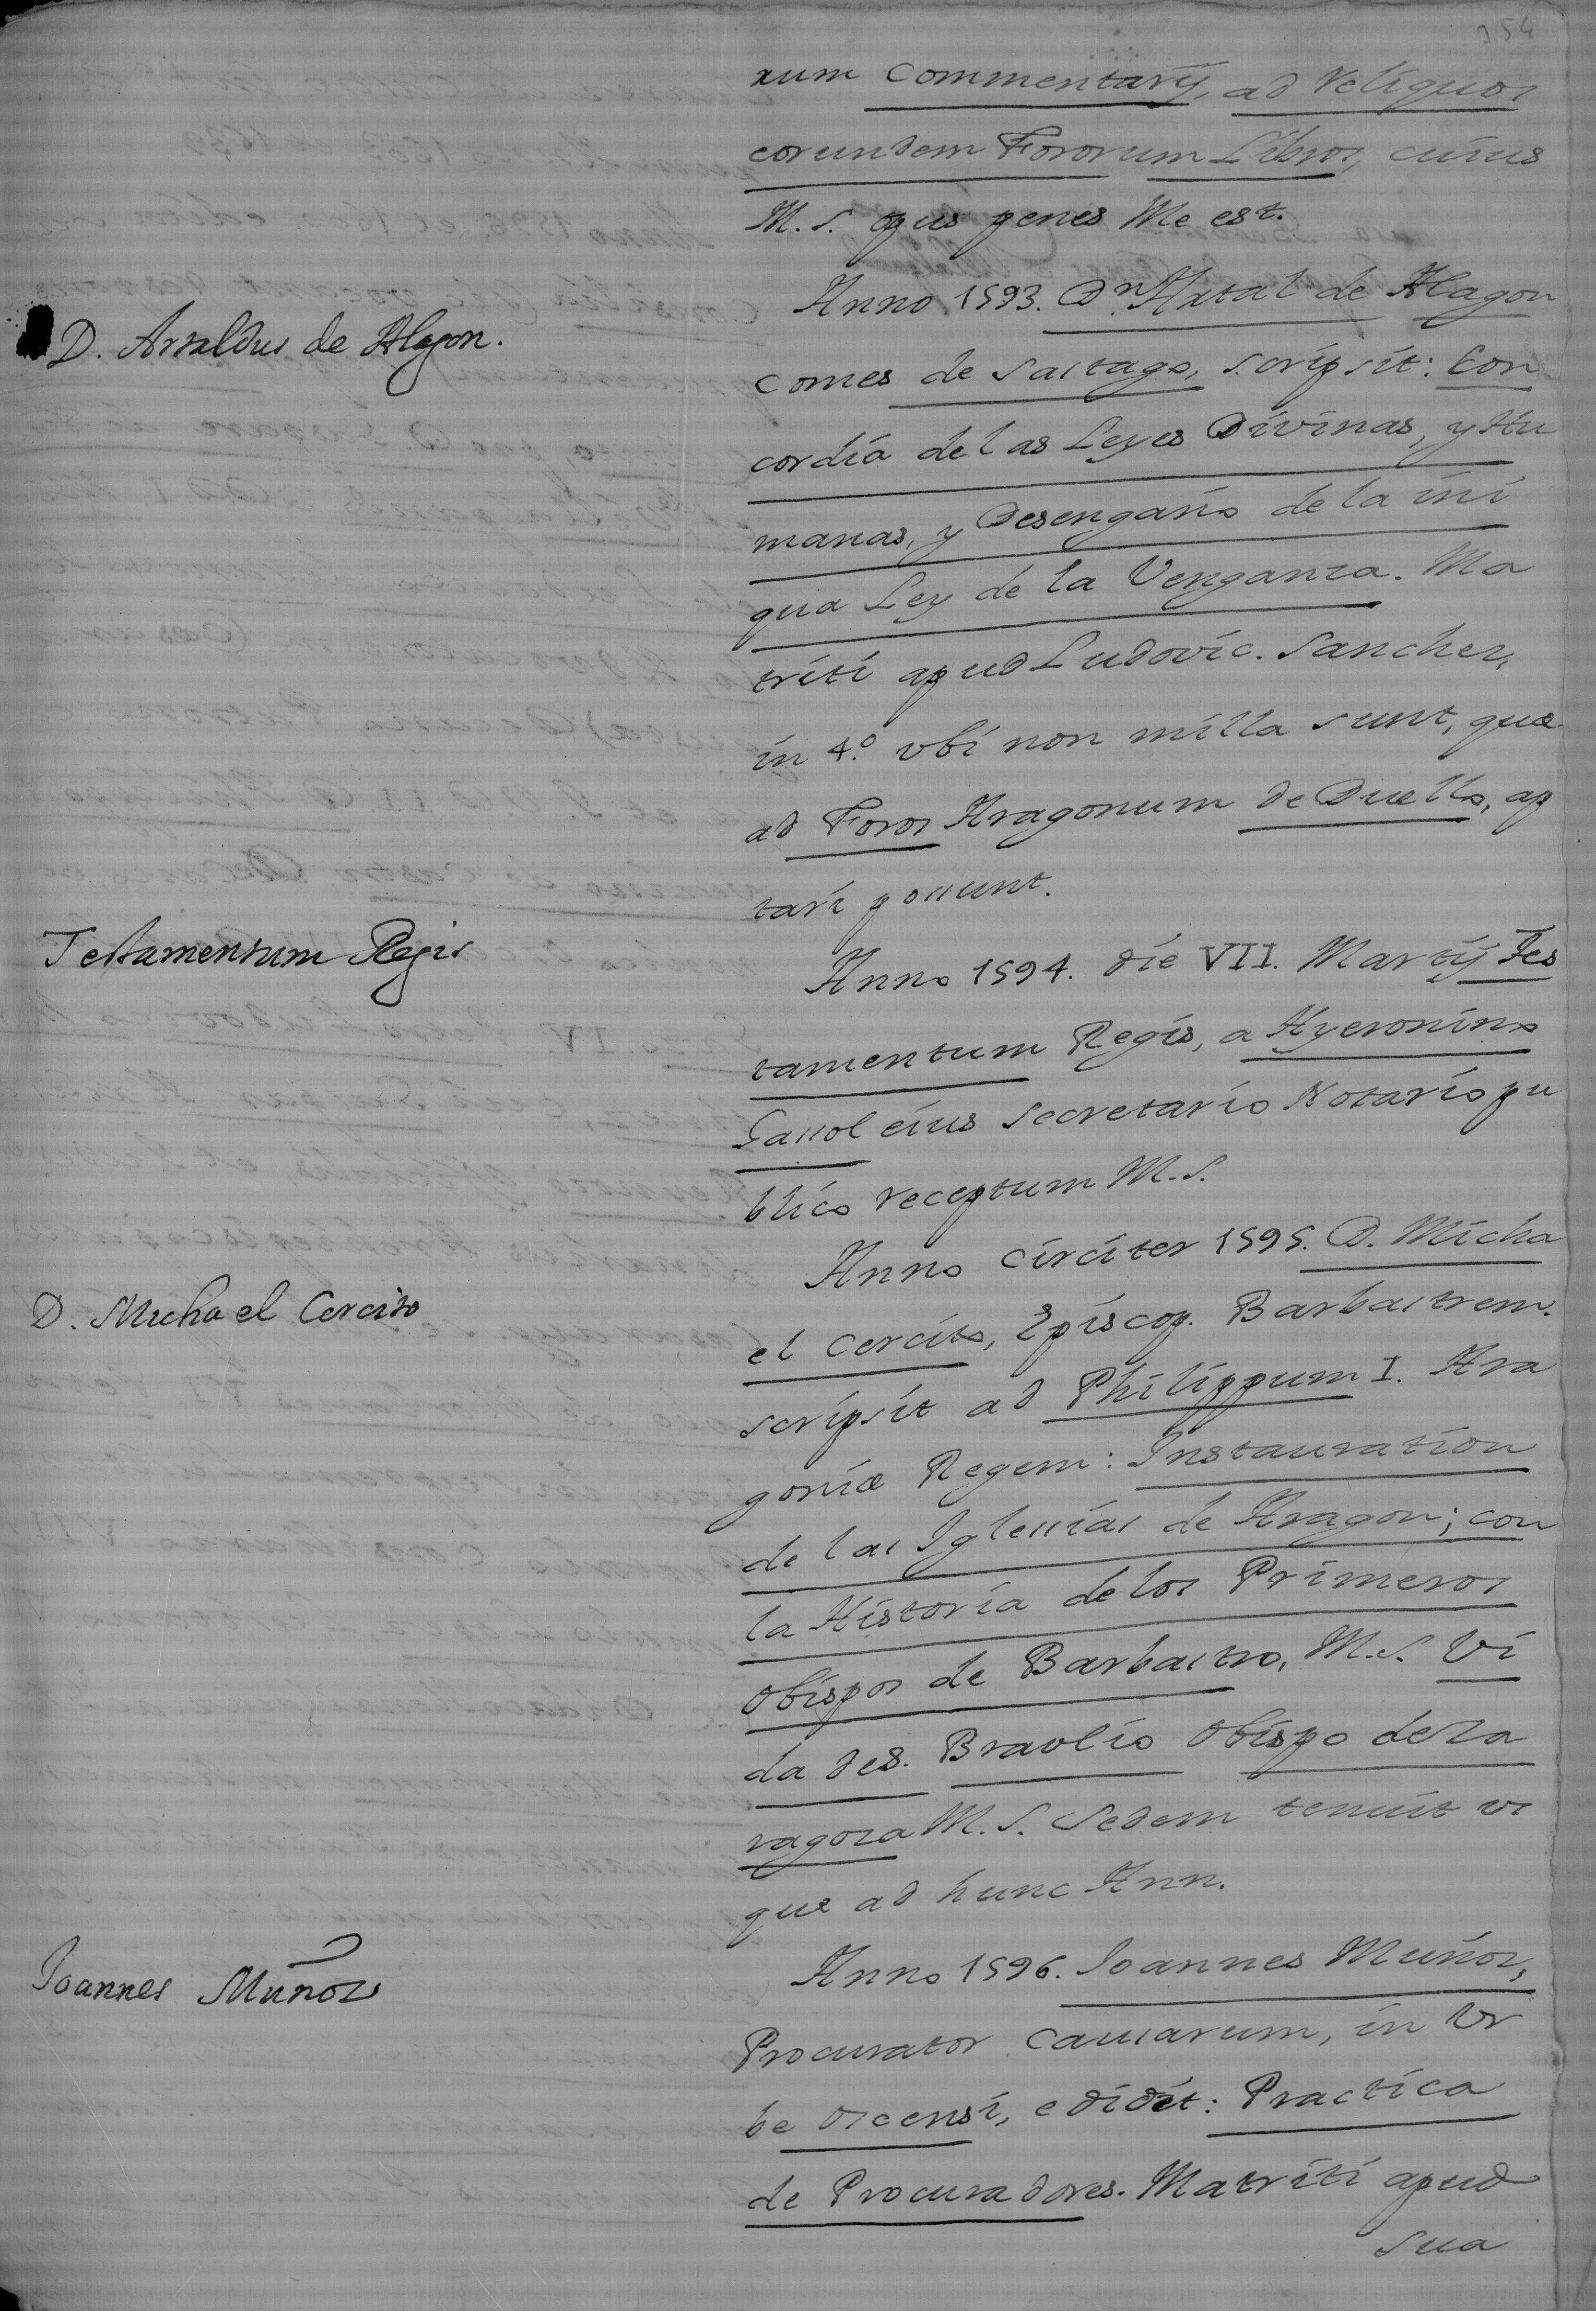 354
rum Commentarÿ, ad reliquos
eorundem Fororum Libros, cuius
M.S. opus penes Me est.
D. Artaldus de Alagon.
Anno 1593. Dn. Artal de Alagon
comes de Sastago, scripsit: Con
cordia de las Leyes Divinas, y Hu
manas, y Desengaño de la ini
qua Ley de la Venganza. Ma
triti apud Ludovic. Sanchez,
in 4.º vbi non nulla sunt, quæ
ad Foros Aragonum de Duello, ap
tari possunt.
Testamentum Regis
Anno 1594. die VII. Martÿ Tes
tamentum Regis, a Hyeronimo
Gassol eius Secretario Notario pu
blico receptum M.S.
D. Michael Cercito
Anno circiter 1595. D. Micha
el Cercito, Episcop. Barbastrem.
scripsit ad Philippum I. Ara
goniæ Regem: Instauration
de las Iglessias de Aragon; con
la Historia de los Primeros
Obispos de Barbastro, M.S. Vi
da de S. Braulio Obispo de Za
ragoza M.S. Sedem tenuit vs
que ad hunc Ann.
Joannes Muñoz
Anno 1596. Joannes Muñoz,
Procurator Causarum, in Vr
be Oscensi, edidit: Practica
de Procuradores. Matriti apud
Sua